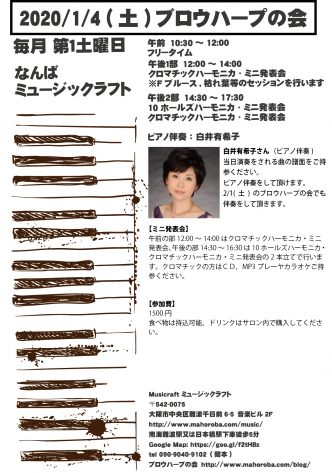 2020/1/4(土)ブロウハープの会
毎月 第1土曜日
なんば
ミュージックラフト
午前 10:30 〜 12:00
フリータイム
午後1部 12:00 〜 14:00
クロマチックハーモニカ・ミニ発表会
※F ブルース、枯れ葉等のセッションを行います
午後2部 14:30 〜 17:30
10 ホールズハーモニカ・ミニ発表会
クロマチックハーモニカ・ミニ発表会
ピアノ伴奏：白井有希子
白井有希子さん（ピアノ伴奏）
当日演奏をされる曲の譜面をご持
参ください。
ピアノ伴奏をして頂けます。
2/1( 土 ) のブロウハープの会でも
伴奏をして頂きます。
【ミニ発表会】
午前の部 12:00 〜 14:00 はクロマチックハーモニカ・ミニ
発表会、午後の部 14:30 〜 16:30 は 10 ホールズハーモニカ・
クロマチックハーモニカ・ミニ発表会の 2 本立てで行いま
す。クロマチックの方はＣＤ、MP3 プレーヤカラオケご持
参ください。
【参加費】
1500 円
食べ物は持込可能、ドリンクはサロン内で購入してくださ
い。
Musicraft ミュージックラフト
〒542-0075
大阪市中央区難波千日前 6-5 音楽ビル 2F
http://www.mahoroba.com/music/
南海難波駅又は日本橋駅下車徒歩5分
Google Map: https://goo.gl/f2tHBz
tel 090-9040-9102 ( 岡本 )
ブロウハープの会 http://www.mahoroba.com/blog/